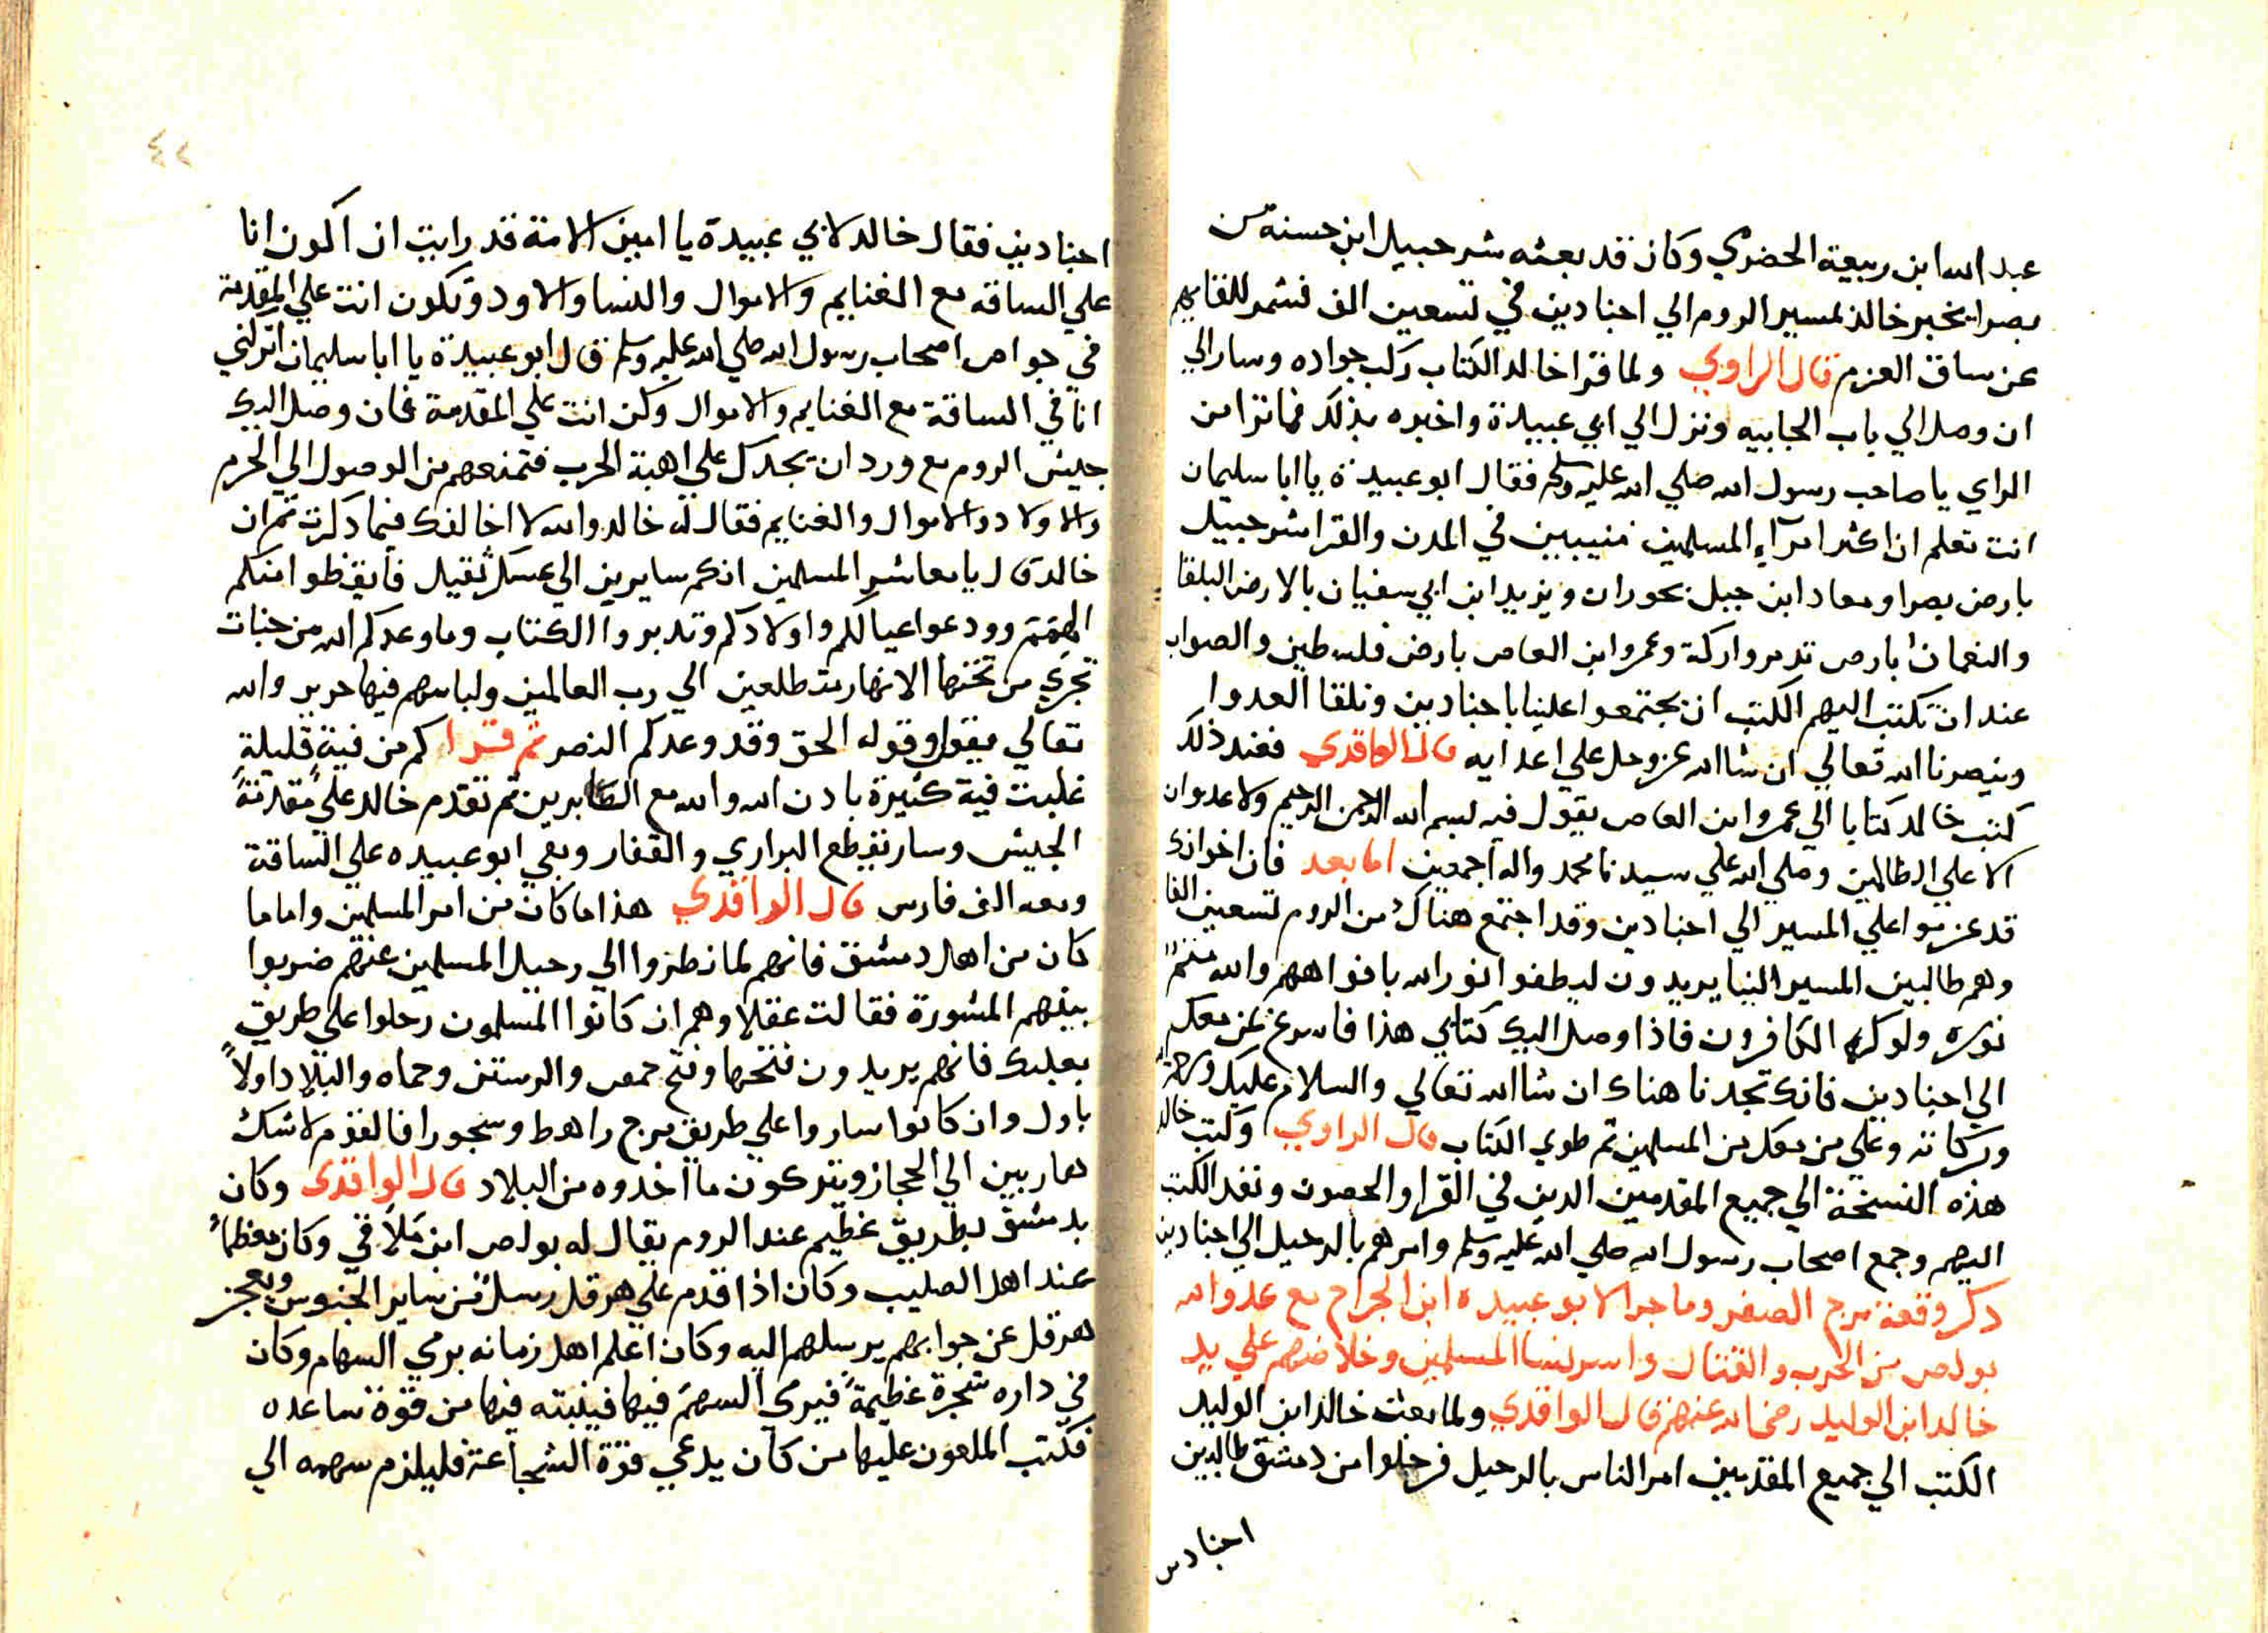 عبد الله ابن ربيعة الحضرمي وكان قد بعثه شرحبيل ابن حسنة من
بصرا يخبر خالد بمسير الروم الي اجنادين في تسعين الف فشمر للقايهم
عن ساق العزم قال الراوي ولما قرا خالد الكتاب ركب جواده وسار الي
ان وصل الي باب الجابيه ونزل الي ابي عبيدة واخبره بذلك فما ترا من
الراي يا صاحب رسول الله صلي الله عليه وسلم فقال ابو عبيدة يا ابا سليمان
انت تعلم ان اكثر امرآء المسلمين في المدن والقرا شرحبيل
بارض بصرا ومعاد ابن جبل بحوران ويزيد ابن ابي سفيان بالارض البلقا
والنعمان بارض تدمر واركة وعمرو ابن العاص بارض فلسطين والصواب
عند ان تكتب اليهم الكتب ان يجتمعوا علينا باجنادين ونلقا العدوا
وينصرنا الله تعالي ان شا الله عز وجل علي اعدايه قال الواقدي فعند ذلك
كتب خالد كتابا الي عمروا ابن العاص يقول فيه بسم الله الرحمن الرحيم ولا عدوان
الا علي الظالمين وصلي الله علي سيدنا محمد واله اجمعين اما بعد فان اخوانك
قد عزموا علي المسير الي اجنادين وقد اجتمع هناك من الروم تسعين الفا
وهم طالبين المسير الينا يريدون ليطفوا نور الله بافواههم والله متم
نوره ولو كره الكافرون فاذا وصل اليك كتابي هذا فاسرع بمن معك
الي اجنادين فانك تجدنا هناك ان شا الله تعالي والسلام عليك ورحمة الله
وبركاته وعلي من معك من المسلمين ثم طوي الكتاب قال الراوي وكتب خالد
هذه النسخة الي جميع المقدمين الدين في القرا والحصون ونفد الكتب
اليهم وجمع اصحاب رسول الله صلي الله عليه وسلم وامرهم بالرحيل الي اجنادين
دكر وقعة مرج الصفر وما جرا لابو عبيده ابن الجراح مع عدو الله
بولص من الحرب والقتال واسر نسا المسلمين وخلاصهم علي يد
خالد ابن الوليد رضي الله عنهم قال الواقدي ولما بعث خالد ابن الوليد
الكتب الي جميع المقدمين امر الناس بالرحيل فرحلوا من دمشق طالبين
اجنادين
٤٢
اجنادين فقال خالد لابي عبيدة يا امين الامة قد رايت ان اكون انا
علي الساقه مع الغنايم والاموال والنسا والاولاد وتكون انت علي المقدمة
في خواص اصحاب رسول الله صلي الله عليه وسلم قال ابو عبيدة يا ابا سليمان اتركني
انا في الساقة مع الغنايم والاموال وكن انت علي المقدمة فان وصل اليك
جيش الروم مع وردان يجدك علي اهبة الحرب فتمنعهم من الوصول الي الحرم
والاولاد والاموال والغنايم فقال له خالد والله لا اخالفك فيما دكرت ثم ان
خالد قال يا معاشر المسلمين انكم سايرين الي عسكر ثقيل فايقظوا منكم
الهمم وودعوا عيالكم واولادكم وتدبروا الكتاب وما وعدكم الله من جنات
تجري من تحتها الانهار متطلعين الي رب العالمين ولباسهم فيها حرير والله
تعالي يقول وقوله الحق وقد وعدكم النصر ثم قرا كم من فية قليلة
غلبت فية كثيرة بادن الله والله مع الصابرين ثم تقدم خالد علي مقدمة
الجيش وسار يقطع البراري والقفار وبقي ابو عبيده علي الساقة
ومعه الف فارس قال الواقدي هذا ما كان من امر المسلمين واما ما
كان من اهل دمشق فانهم لما نظروا الي رحيل المسلمين عنهم ضربوا
بينهم المشورة فقالت عقلاوهم ان كانوا المسلمون رحلوا علي طريق
بعلبك فانهم يريدون فتحها وفتح حمص والرستن وحماه والبلاد اولاً
باول وان كانوا ساروا علي طريق مرج راهط وسجورا فالقوم لا شك
هاربين الي الحجاز ويتركون ما اخدوه من البلاد قال الواقدي وكان
بدمشق بطريق عظيم عند الروم يقال له بولص ابن ملاقي وكان معظماً
عند اهل الصليب وكان اذا قدم علي هرقل رسل من ساير الجنوس ويعجز
هرقل عن جوابهم يرسلهم اليه وكان اعلم اهل زمانه برمي السهام وكان
في داره شجرة عظيمة فيرمي السهم فيها فينبته فيها من قوة ساعده
فكتب الملعون عليها من كان يدعي قوة الشجاعة فليلزم سهمه الي